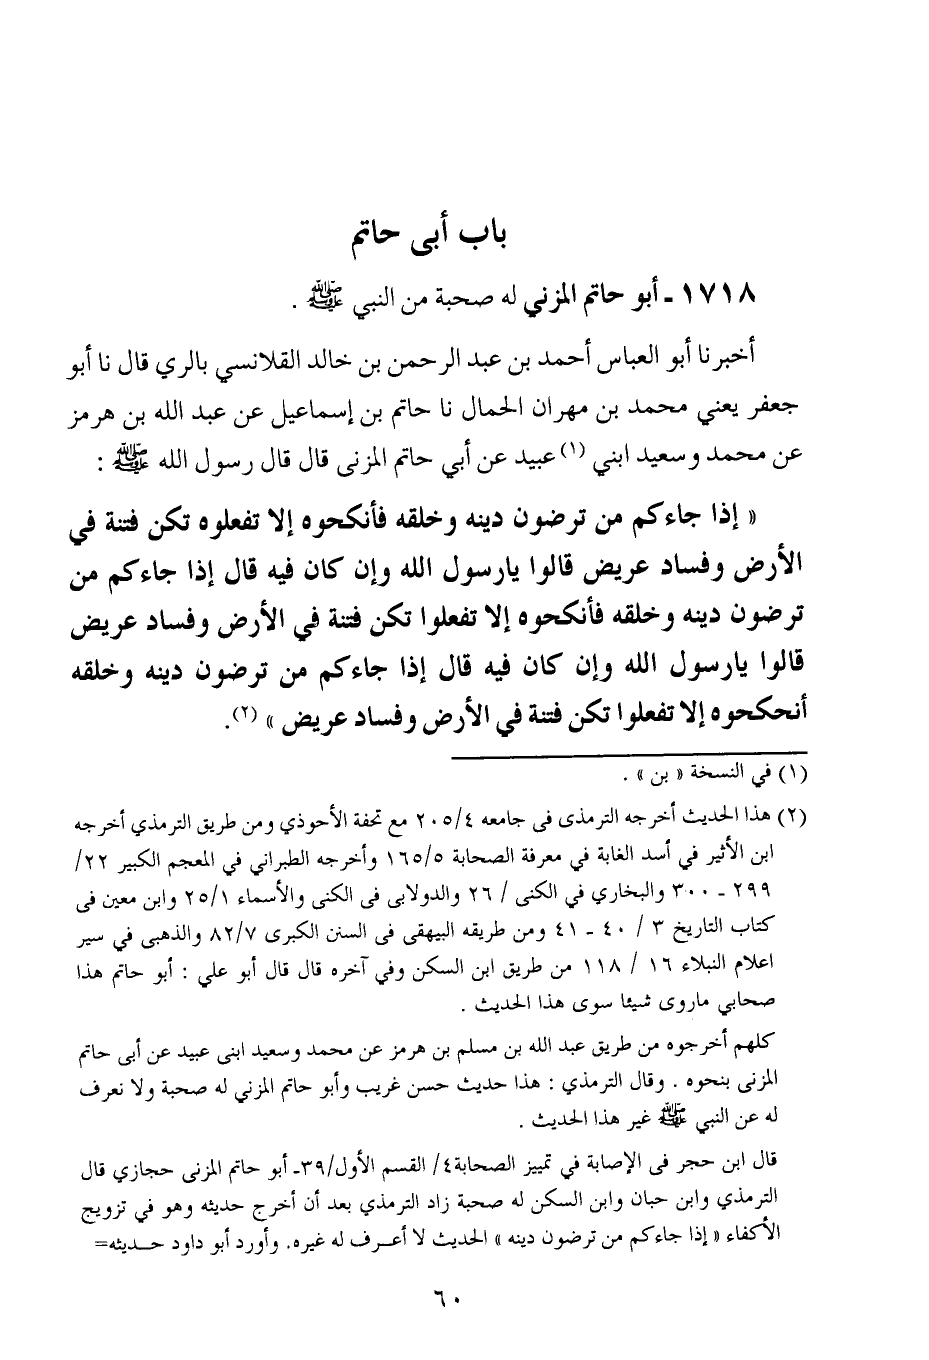 باب أبى حاتم
١٧١٨ ـ أبو حاتم المزني له صحبة من النبي ﷺ .
أخبرنا أبو العباس أحمد بن عبد الرحمن بن خالد القلانسي بالري قال نا أبو
جعفر يعني محمد بن مهران الحمال نا حاتم بن إسماعيل عن عبد الله بن هرمز
عن محمد وسعيد ابني (١) عبيد عن أبي حاتم المزنى قال قال رسول الله ﷺ :
« إذا جاءكم من ترضون دينه وخلقه فأنكحوه إلا تفعلوه تكن فتنة في
الأرض وفساد عريض قالوا يارسول الله وإن كان فيه قال إذا جاءكم من
ترضون دينه وخلقه فأنكحوه إلا تفعلوا تكن فتنة في الأرض وفساد عريض
قالوا يارسول الله وإن كان فيه قال إذا جاءكم من ترضون دينه وخلقه
أنحكحوه إلا تفعلوا تكن فتنة في الأرض وفساد عريض » (٢).
(١) في النسخة « بن » .
(٢) هذا الحديث أخرجه الترمذى فى جامعه ٢٠٥/٤ مع تحفة الأحوذي ومن طريق الترمذي أخرجه
ابن الأثير في أسد الغابة في معرفة الصحابة ١٦٥/٥ وأخرجه الطبراني في المعجم الكبير ٢٢/
٢٩٩ ـ ٣٠٠ والبخاري في الكنى / ٢٦ والدولابى فى الكنى والأسماء ٢٥/١ وابن معين فى
كتاب التاريخ ٣ / ٤٠ ـ ٤١ ومن طريقه البيهقى فى السنن الكبرى ٨٢/٧ والذهبى في سير
اعلام النبلاء ١٦ / ١١٨ من طريق ابن السكن وفي آخره قال قال أبو علي : أبو حاتم هذا
صحابي ماروى شيئا سوى هذا الحديث .
كلهم أخرجوه من طريق عبد الله بن مسلم بن هرمز عن محمد وسعيد ابنى عبيد عن أبى حاتم
المزنى بنحوه . وقال الترمذي : هذا حديث حسن غريب وأبو حاتم المزني له صحبة ولا نعرف
له عن النبي ﷺ غير هذا الحديث .
قال ابن حجر فى الإصابة في تمييز الصحابة٤/ القسم الأول/٣٩ـ أبو حاتم المزنى حجازي قال
الترمذي وابن حبان وابن السكن له صحبة زاد الترمذي بعد أن أخرج حديثه وهو في تزويج
الأكفاء « إذا جاءكم من ترضون دينه » الحديث لا أعـرف له غيره. وأورد أبو داود حـديثه=
٦٠